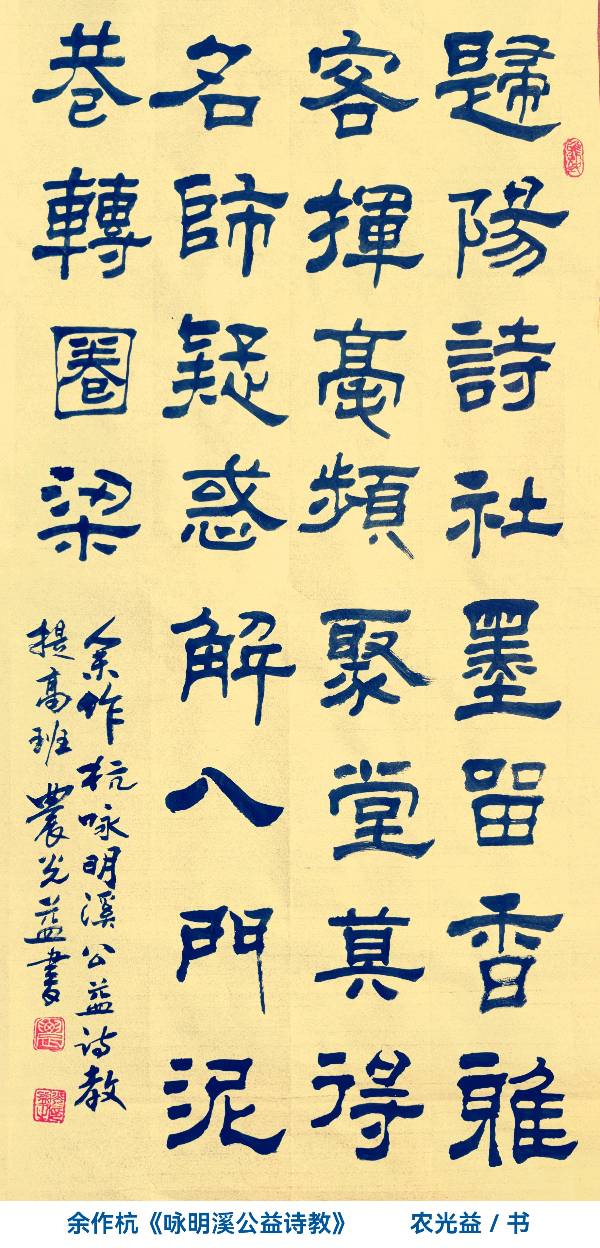 歸陽詩社墨留香雅
客揮毫頻聚堂莫得
名師疑惑解入門泥
巷轉圈梁
余作杭咏明溪公益诗教
提高班農光益書
余作杭《咏明溪公益诗教》 农光益 / 书